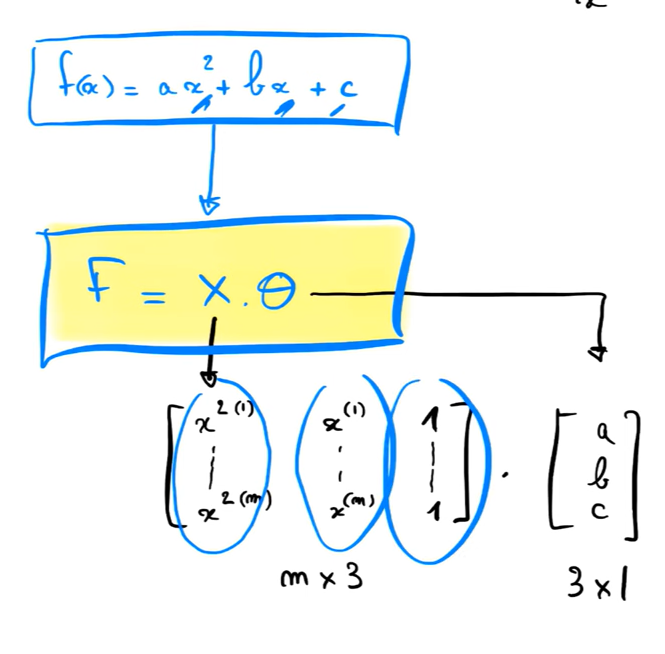 f(x) = ax² + bx + c
F = X.θ
x²⁽¹⁾ x⁽¹⁾ 1 a
b
x²⁽ᵐ⁾ x⁽ᵐ⁾ 1 . c
m x 3 3 x 1